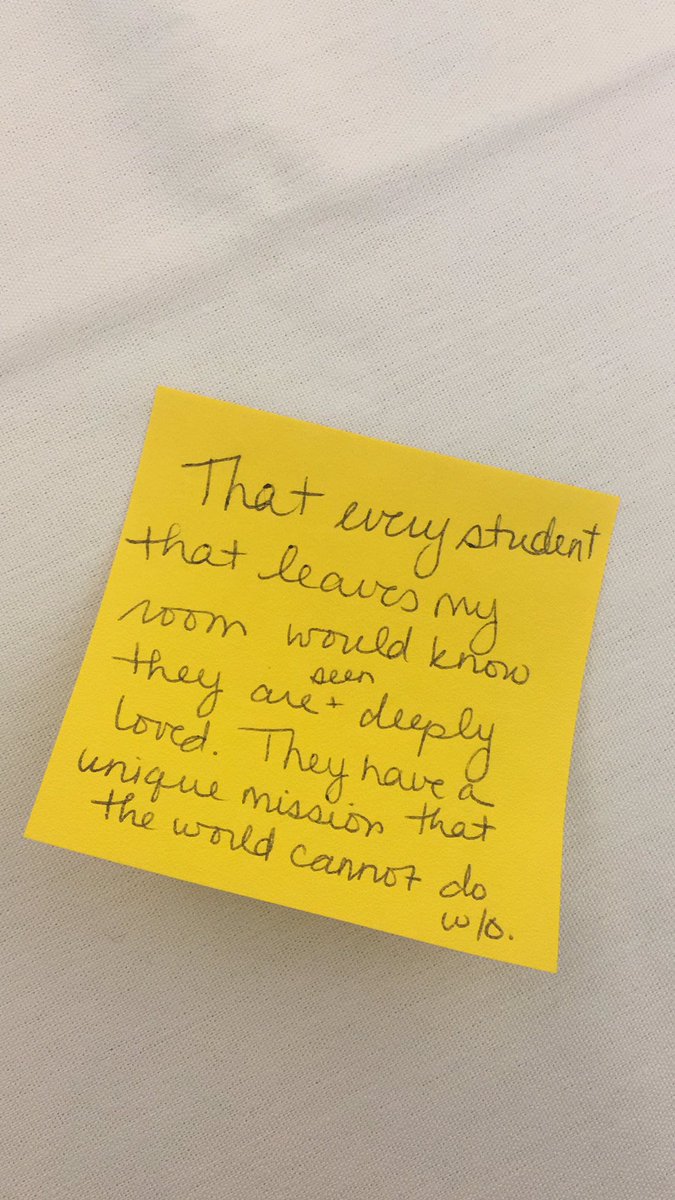 That every student
that leaves my
room would know
they are seen + deeply
loved. They have a
unique mission that
the world cannot do
w/o.